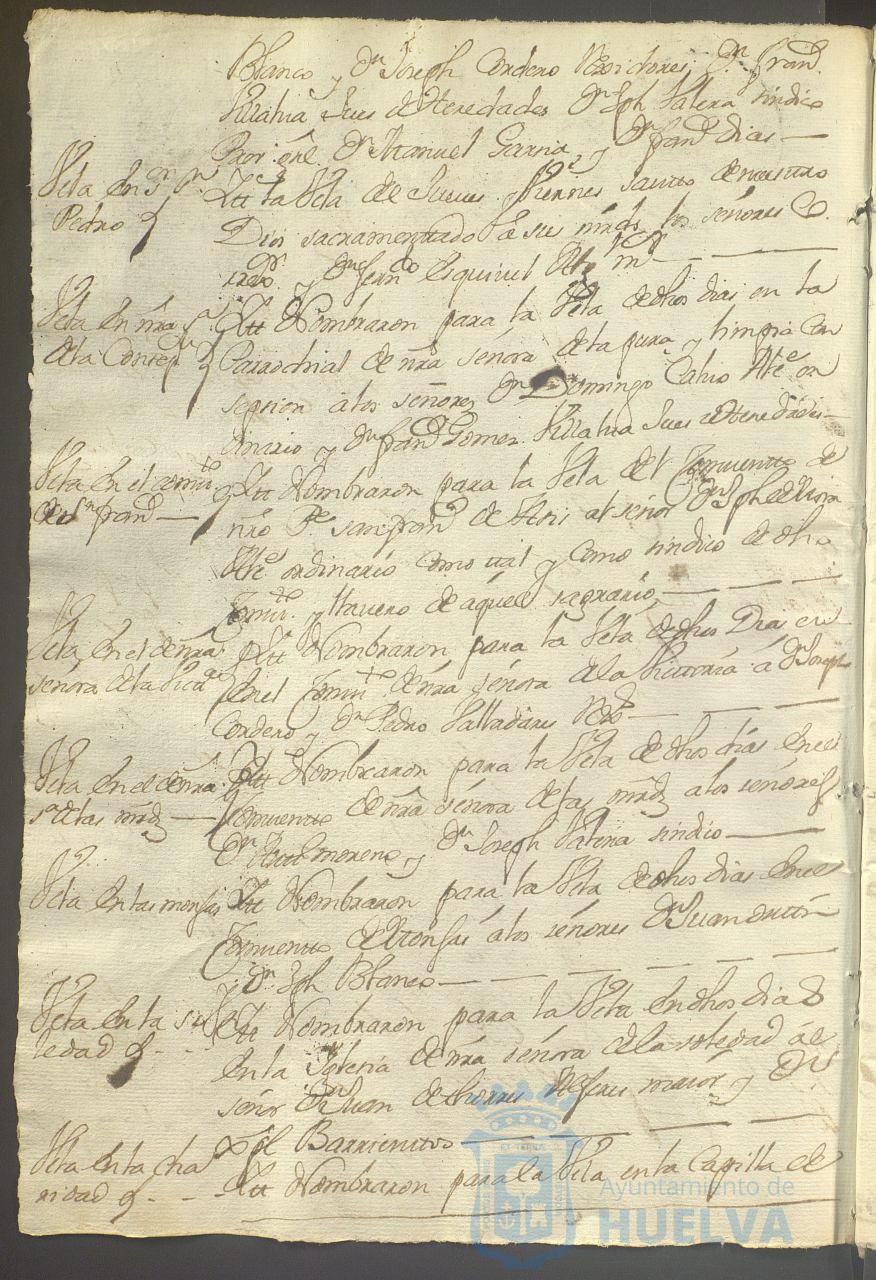 Blanco y Dn Joseph Cordero Rexidores, Dn Frand.
Villalva Jues de Heredades Dn Jph Valera sindico
Dn Manuel Garcia, y Dn frand Dias —
Vela en Sn Pn
Pedro
Ytt la Vela de Jueves y Viernes santo de nuestro
Dios sacramentado a sus mrds los señores
y Dn Ferndo Esquivel
Vela en nra sa
de la Concepn
Ytt Nombraron para la Vela de dhos dias en la
Parrochial de nra señora de la pura y limpia Con
sepsion a los señores Dn Domingo Calvo Alte or
dinario y Dn frand Gomez Villalva Jues de Heredades —
Vela en el comto
de Sn frand —
Ytt Nombraron para la Vela del Comvento de
nro Pe san frand de Asis al señor Dn Jph de
Alte ordinario como tal y como sindico de dho
Comto y llavero de aquel sagrario — — —
Vela en el de nra
señora de la Victa
Ytt Nombraron para la Vela de dhos Dias en
en el Comto de nra señora de la Victoria a Dn Joseph
Cordero y Dn Pedro Valladares — — —
Vela en el de nra
sa de las mrds —
Ytt Nombraron para la Vela de dhos dias en el
Comvento de nra señora de las mrds a los señores
Dn moreno y Dn Joseph Valera sindico —
Vela en las monjas
Ytt Nombraron para la Vela de dhos dias en el
Comvento de Monjas a los señores Dn Juan
y Dn Jph Blanco — — — — —
Vela en la so
ledad
Ytt Nombraron para la Vela en dhos dias
en la Iglesia de nra señora de la soledad al
señor Dn Juan de thorres Alferes maior y Dn
Barrientos — — — —
Vela en la cha
ridad
Ytt Nombraron para la Vela en la Capilla de
Ayuntamiento de
HUELVA